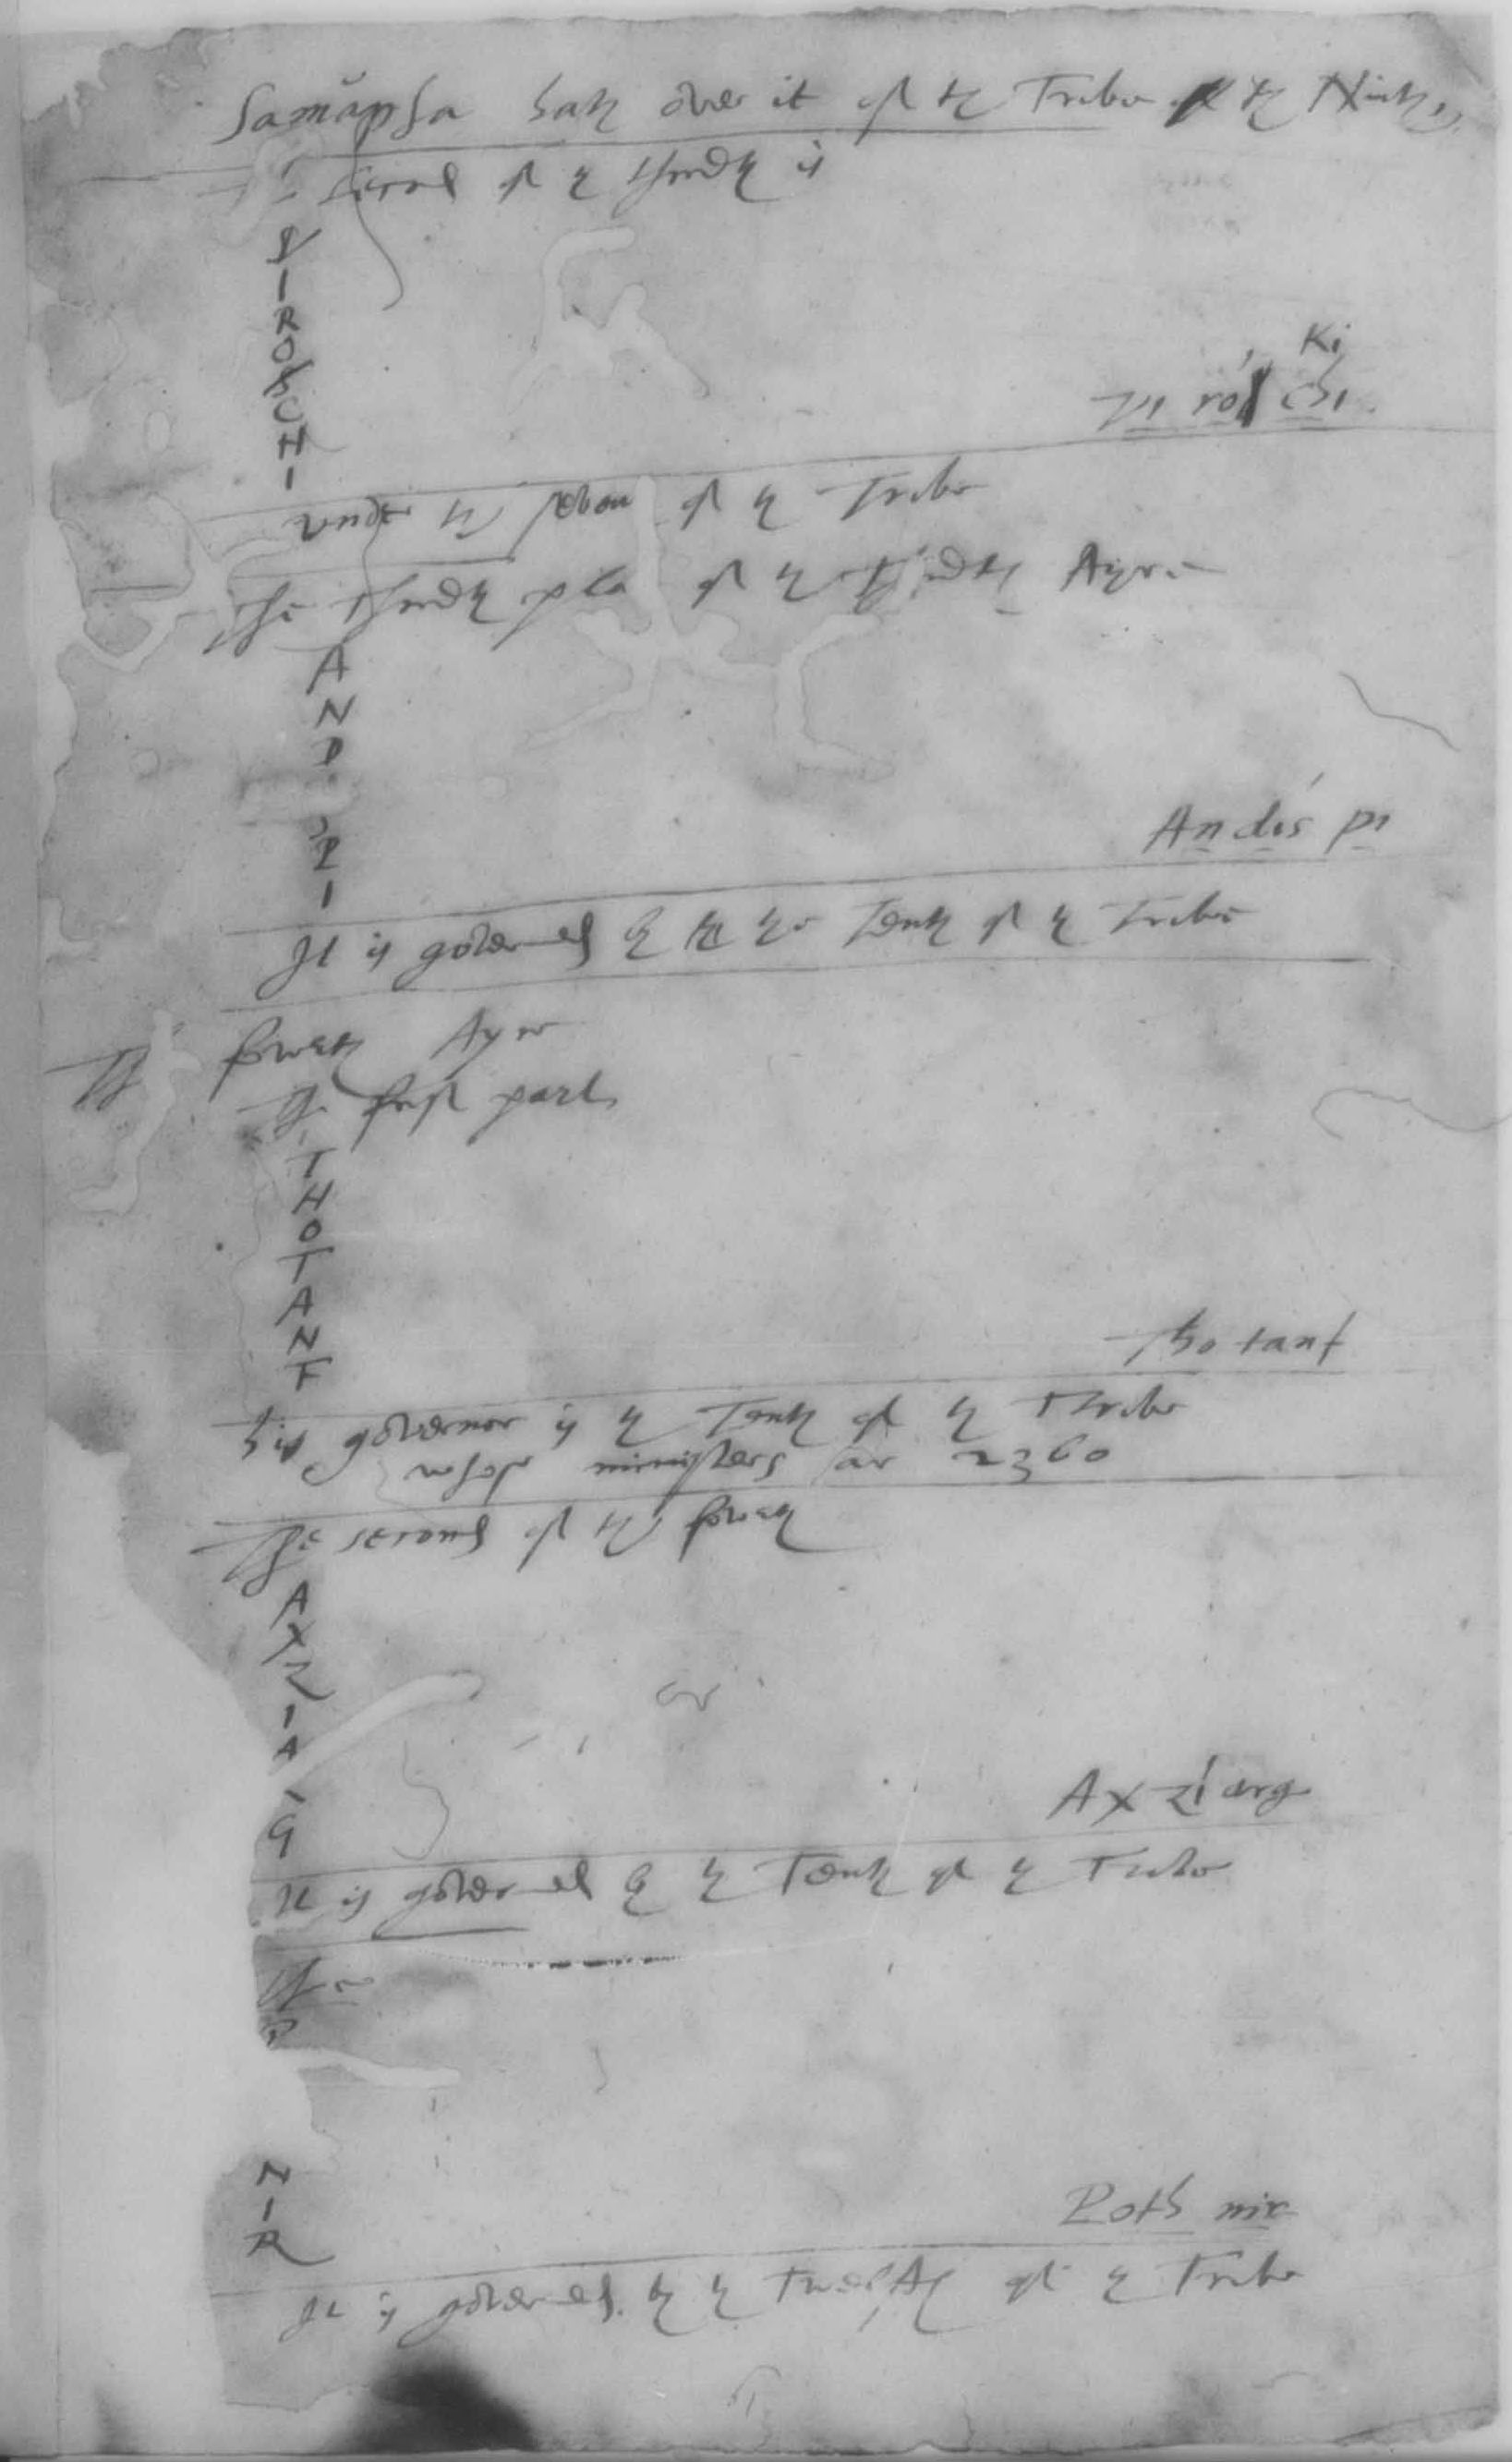 Samapha hath over it of the Tribe of the Ninth,
second of the thirdth is
V
I
R
O
O
H
I
Ki
Vi rol chi.
under the seven of the Tribe
The thirdth pla of the thirdth Ayre
A
N
D
I
S
P
I
Andís pi
It is governed by the the Tenth of the Tribe
The fowrth Ayre
The first part
T
H
O
T
A
N
F
Tho tanf
his governor is the Tenth of the Tribe
whose ministers ar 2360
The second of the fowrth
A
X
Z
I
A
G
or
Ax zíarg
It is governed by the Tenth of the Tribe
The
N
I
R
Poth nir
It is governed by the Twelfth of the Tribe